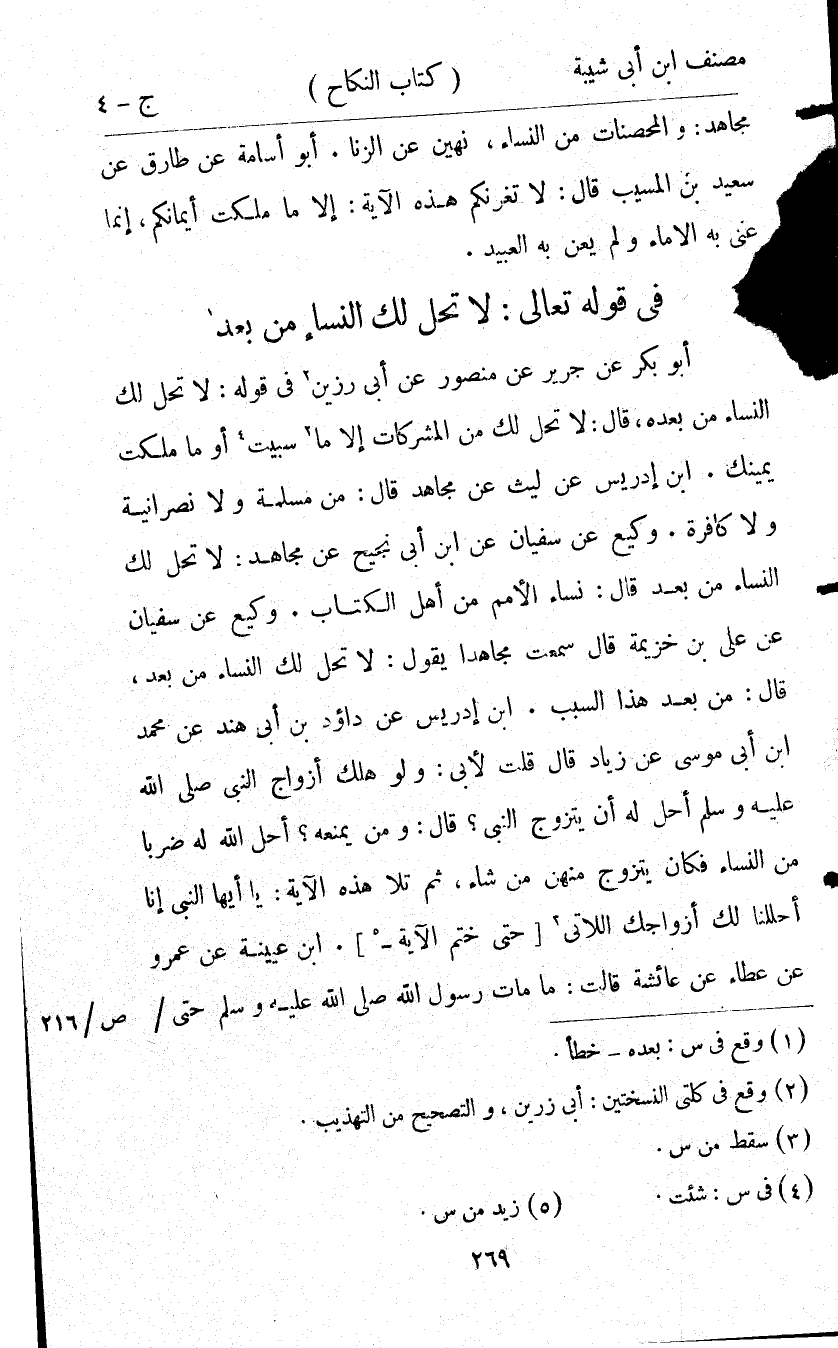 مصنف ابن أبى شيبة ( كتاب النكاح ) ج - ٤
مجاهد: و المحصنات من النساء، نهين عن الزنا . أبو أسامة عن طارق عن
سعيد بن المسيب قال: لا تغرنكم هـذه الآية: إلا ما ملـكت أيمانكم، إنما
عنى به الاماء و لم يعن به العبيد .
فى قوله تعالى: لا تحل لك النساء من بعد١
أبو بكر عن جرير عن منصور عن أبى رزين٢ فى قوله: لا تحل لك
النساء من بعده، قال: لا تحل لك من المشركات إلا ما٣ سبيت٤ أو ما ملـكت
يمينك . ابن إدريس عن ليث عن مجاهد قال: من مسلمـة و لا نصرانيـة
و لا كافرة . وكيع عن سفيان عن ابن أبى نجيح عن مجاهـد: لا تحل لك
النساء من بعـد قال: نساء الأمم من أهل الـكتـاب . وكيع عن سفيان
عن على بن خزيمة قال سمعت مجاهدا يقول: لا تحل لك النساء من بعد،
قال: من بعـد هذا السبب . ابن إدريس عن داؤد بن أبى هند عن محمد
ابن أبى موسى عن زياد قال قلت لأبى: و لو هلك أزواج النبى صلى الله
عليـه و سلم أحل له أن يتزوج النبى؟ قال: و من يمنعه؟ أحل الله له ضربا
من النساء فكان يتزوج منهن من شاء، ثم تلا هذه الآية: يا أيها النبى إنا
أحللنا لك أزواجك اللاتى٢ [ حتى ختم الآية -٥ ] . ابن عيينـة عن عمرو
عن عطاء عن عائشة قالت: ما مات رسول الله صلى الله عليـه و سلم حتى / ص/٢١٦
(١) وقع فى س: بعده - خطأ .
(٢) وقع فى كلتى النسختين: أبى زرين، و التصحيح من التهذيب .
(٣) سقط من س .
(٤) فى س: شئت . (٥) زيد من س .
٢٦٩